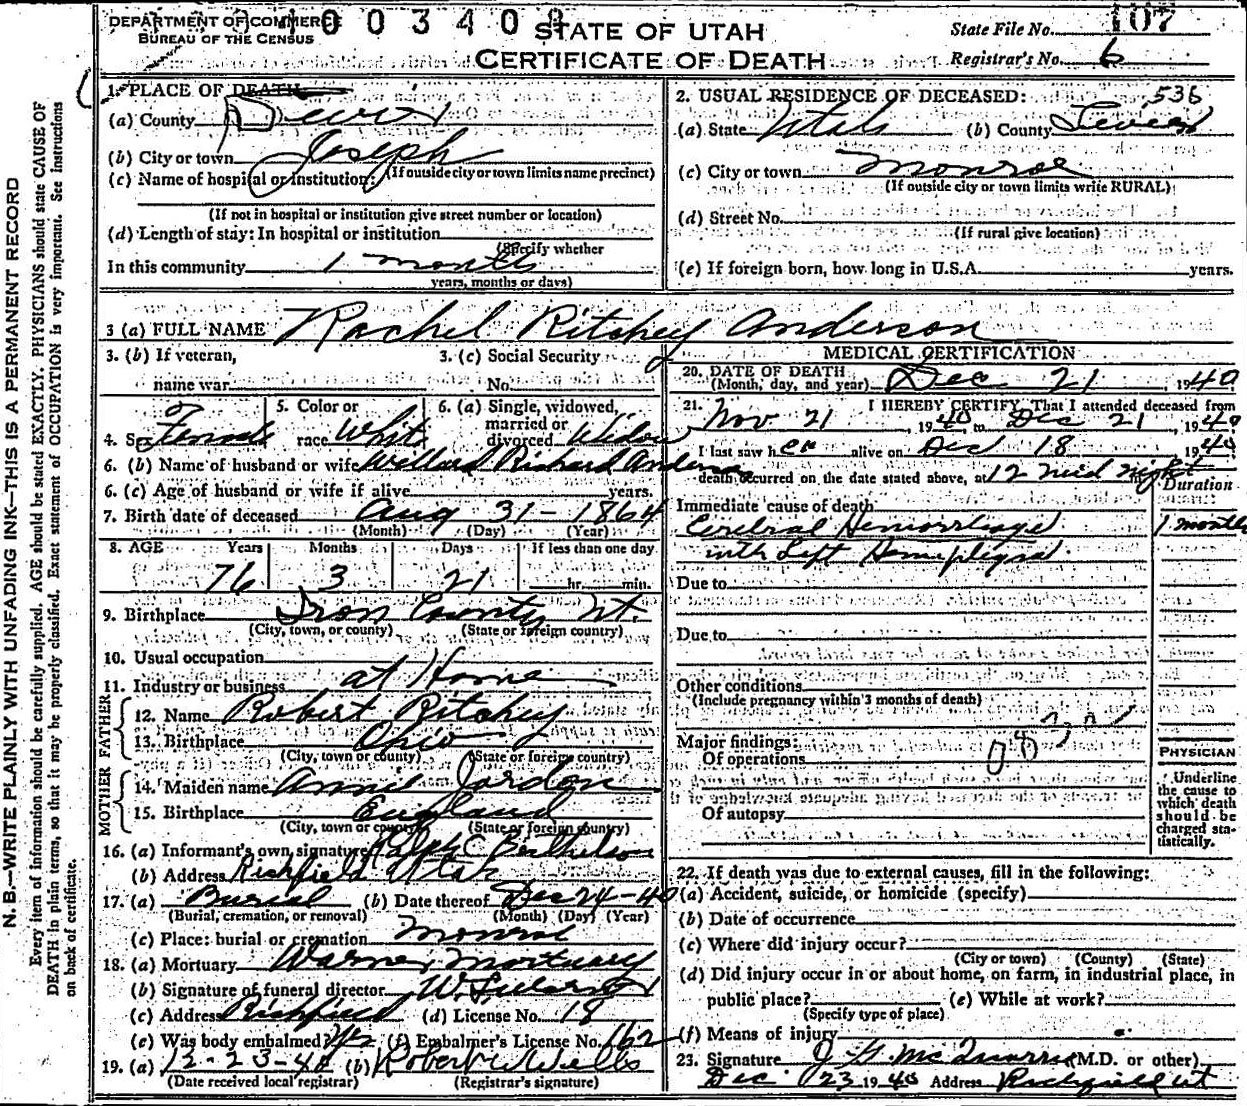 DEPARTMENT OF COMMERCE
BUREAU OF THE CENSUS
0 0 3 4 0
STATE OF UTAH
CERTIFICATE OF DEATH
State File No. 107
Registrar's No. 6
N. B.—WRITE PLAINLY WITH UNFADING INK—THIS IS A PERMANENT RECORD
Every item of information should be carefully supplied. AGE should be stated EXACTLY. PHYSICIANS should state CAUSE OF
DEATH in plain terms, so that it may be properly classified. Exact statement of OCCUPATION is very important. See Instructions
on back of certificate.
1. PLACE OF DEATH
(a) County Sevier
(b) City or town Joseph
(If outside city or town limits name precinct)
(c) Name of hospital or institution:
(If not in hospital or institution give street number or location)
(d) Length of stay: In hospital or institution
(Specify whether
In this community 1 month
years, months or days)
2. USUAL RESIDENCE OF DECEASED: 536
(a) State Utah (b) County Sevier
(c) City or town Monroe
(If outside city or town limits write RURAL)
(d) Street No.
(If rural give location)
(e) If foreign born, how long in U.S.A. years.
3 (a) FULL NAME Rachel Ritchey Anderson
3. (b) If veteran,
name war
3. (c) Social Security
No.
4. Sex Female
5. Color or
race White
6. (a) Single, widowed,
married or
divorced Widow
6. (b) Name of husband or wife Willard Richard Anderson
6. (c) Age of husband or wife if alive years.
7. Birth date of deceased Aug 31 - 1864
(Month) (Day) (Year)
8. AGE Years Months Days If less than one day
76 3 21 hr. min.
9. Birthplace Iron County Ut.
(City, town, or county) (State or foreign country)
10. Usual occupation
11. Industry or business at Home
FATHER
12. Name Robert Ritchey
13. Birthplace Ohio
(City, town or county) (State or foreign country)
MOTHER
14. Maiden name Annie Jordon
15. Birthplace England
(City, town or county) (State or foreign country)
16. (a) Informant's own signature Ralph C Berthelson
(b) Address Richfield Utah
17. (a) Burial (b) Date thereof Dec 24-40
(Burial, cremation, or removal) (Month) (Day) (Year)
(c) Place: burial or cremation Monroe
18. (a) Mortuary Warner Mortuary
(b) Signature of funeral director W.
(c) Address Richfield (d) License No. 18
(e) Was body embalmed? Yes (f) Embalmer's License No. 162
19. (a) 12-23-40 (b) Robert W Wells
(Date received local registrar) (Registrar's signature)
MEDICAL CERTIFICATION
20. DATE OF DEATH
(Month, day, and year) Dec 21, 1940
21. I HEREBY CERTIFY, That I attended deceased from
Nov 21, 1940, to Dec 21, 1940
I last saw her alive on Dec 18 1940
death occurred on the date stated above, at 12 mid night
Duration
Immediate cause of death
Cerebral Hemorrhage 1 month
with Left Hemiplegia.
Due to
Due to
Other conditions
(Include pregnancy within 3 months of death)
Major findings:
Of operations
Of autopsy
PHYSICIAN
Underline
the cause to
which death
should be
charged sta-
tistically.
22. If death was due to external causes, fill in the following:
(a) Accident, suicide, or homicide (specify)
(b) Date of occurrence
(c) Where did injury occur?
(City or town) (County) (State)
(d) Did injury occur in or about home, on farm, in industrial place, in
public place? (e) While at work?
(Specify type of place)
(f) Means of injury
23. Signature J. G. McQuarrie (M.D. or other)
Dec 23 1940 Address Richfield Ut